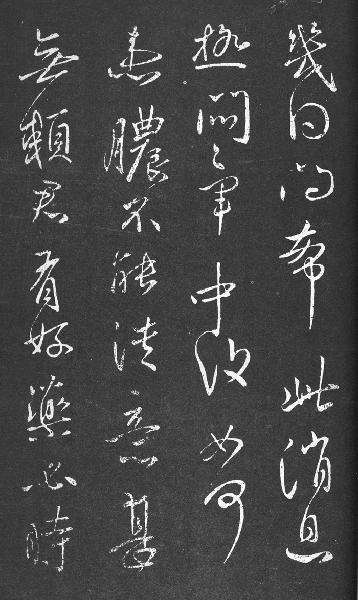 幾日問希此消息
極悶悶軍中收如何
患膿不能溃意甚
無賴君有好藥必時